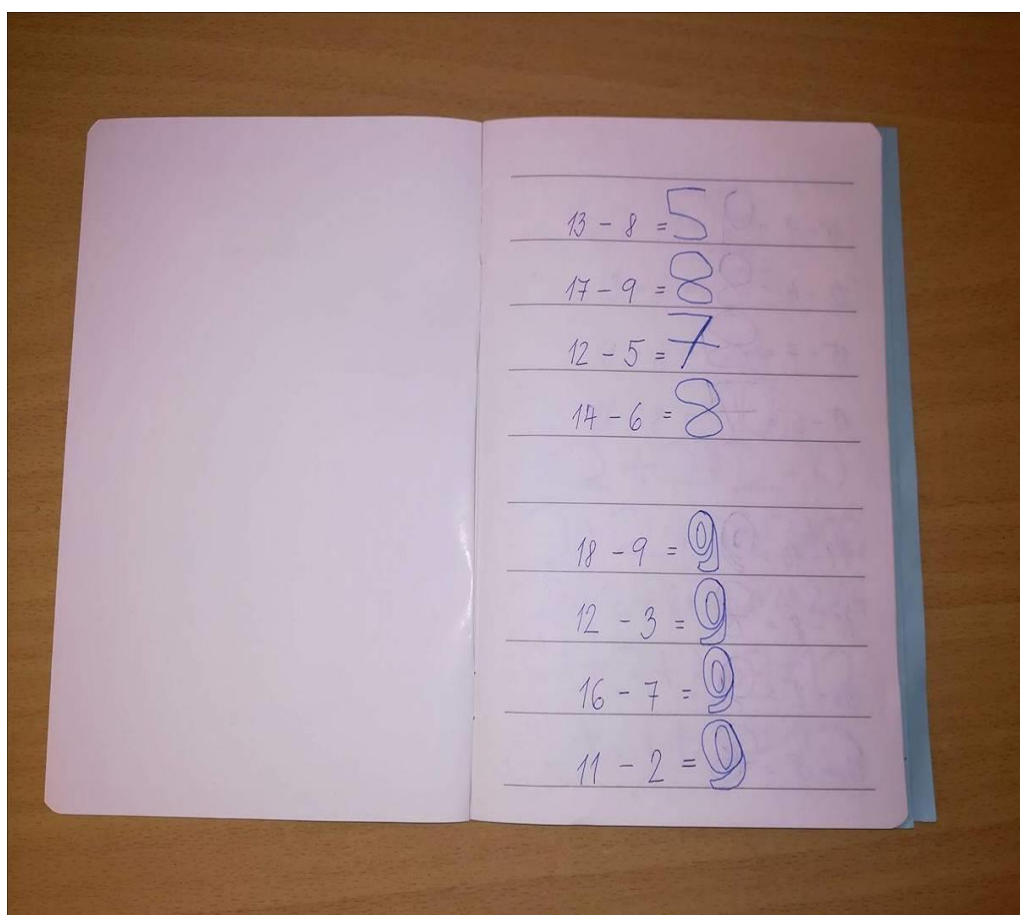 13 - 8 = 5
17 - 9 = 8
12 - 5 = 7
14 - 6 = 8
18 - 9 = 9
12 - 3 = 9
16 - 7 = 9
11 - 2 = 9